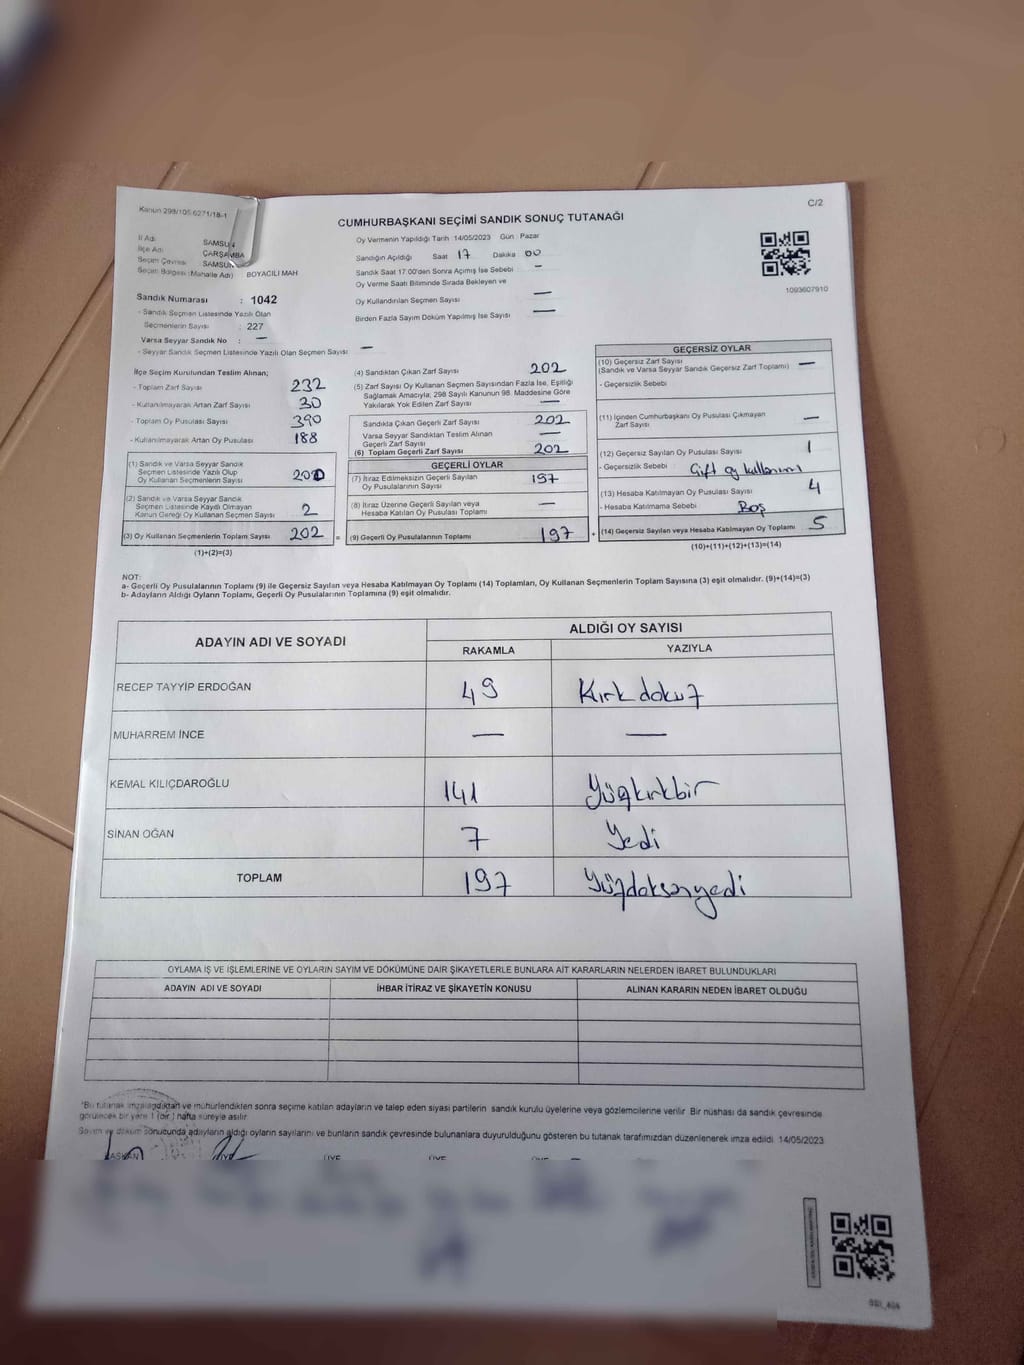 Kanun 298/105 6271/18-1
C/2
CUMHURBAŞKANI SEÇİMİ SANDIK SONUÇ TUTANAĞI
İl Adı SAMSUN
İlçe Adı ÇARŞAMBA
Seçim Çevresi SAMSUN
Seçim Bölgesi (Mahalle Adı) BOYACILI MAH
Sandık Numarası : 1042
- Sandık Seçmen Listesinde Yazılı Olan
Seçmenlerin Sayısı : 227
Varsa Seyyar Sandık No : —
- Seyyar Sandık Seçmen Listesinde Yazılı Olan Seçmen Sayısı —
Oy Vermenin Yapıldığı Tarih 14/05/2023 Gün : Pazar
Sandığın Açıldığı Saat 17 Dakika 00
Sandık Saat 17:00'den Sonra Açımış İse Sebebi —
Oy Verme Saati Bitiminde Sırada Bekleyen ve
Oy Kullandırılan Seçmen Sayısı —
Birden Fazla Sayım Döküm Yapılmış İse Sayısı —
1093607910
İlçe Seçim Kurulundan Teslim Alınan;
- Toplam Zarf Sayısı 232
- Kullanılmayarak Artan Zarf Sayısı 30
- Toplam Oy Pusulası Sayısı 390
- Kullanılmayarak Artan Oy Pusulası 188
(1) Sandık ve Varsa Seyyar Sandık
Seçmen Listesinde Yazılı Olup
Oy Kullanan Seçmenlerin Sayısı 200
(2) Sandık ve Varsa Seyyar Sandık
Seçmen Listesinde Kayıtlı Olmayan
Kanun Gereği Oy Kullanan Seçmen Sayısı 2
(3) Oy Kullanan Seçmenlerin Toplam Sayısı 202 =
(1)+(2)=(3)
(4) Sandıktan Çıkan Zarf Sayısı 202
(5) Zarf Sayısı Oy Kullanan Seçmen Sayısından Fazla İse, Eşitliği
Sağlamak Amacıyla; 298 Sayılı Kanunun 98. Maddesine Göre
Yakılarak Yok Edilen Zarf Sayısı —
Sandıkta Çıkan Geçerli Zarf Sayısı 202
Varsa Seyyar Sandıktan Teslim Alınan
Geçerli Zarf Sayısı —
(6) Toplam Geçerli Zarf Sayısı 202
GEÇERLİ OYLAR
(7) İtiraz Edilmeksizin Geçerli Sayılan
Oy Pusulalarının Sayısı 197
(8) İtiraz Üzerine Geçerli Sayılan veya
Hesaba Katılan Oy Pusulası Toplamı —
(9) Geçerli Oy Pusulalarının Toplamı 197 +
GEÇERSİZ OYLAR
(10) Geçersiz Zarf Sayısı
(Sandık ve Varsa Seyyar Sandık Geçersiz Zarf Toplamı) —
- Geçersizlik Sebebi
(11) İçinden Cumhurbaşkanı Oy Pusulası Çıkmayan
Zarf Sayısı —
(12) Geçersiz Sayılan Oy Pusulası Sayısı 1
- Geçersizlik Sebebi Çift oy kullanımı
(13) Hesaba Katılmayan Oy Pusulası Sayısı 4
- Hesaba Katılmama Sebebi Boş
(14) Geçersiz Sayılan veya Hesaba Katılmayan Oy Toplamı 5
(10)+(11)+(12)+(13)=(14)
NOT:
a- Geçerli Oy Pusulalarının Toplamı (9) ile Geçersiz Sayılan veya Hesaba Katılmayan Oy Toplamı (14) Toplamları, Oy Kullanan Seçmenlerin Toplam Sayısına (3) eşit olmalıdır. (9)+(14)=(3)
b- Adayların Aldığı Oyların Toplamı, Geçerli Oy Pusulalarının Toplamına (9) eşit olmalıdır.
ADAYIN ADI VE SOYADI ALDIĞI OY SAYISI
RAKAMLA YAZIYLA
RECEP TAYYİP ERDOĞAN 49 Kırk dokuz
MUHARREM İNCE — —
KEMAL KILIÇDAROĞLU 141 Yüzkırkbir
SİNAN OĞAN 7 Yedi
TOPLAM 197 Yüzdoksanyedi
OYLAMA İŞ VE İŞLEMLERİNE VE OYLARIN SAYIM VE DÖKÜMÜNE DAİR ŞİKAYETLERLE BUNLARA AİT KARARLARIN NELERDEN İBARET BULUNDUKLARI
ADAYIN ADI VE SOYADI İHBAR İTİRAZ VE ŞİKAYETİN KONUSU ALINAN KARARIN NEDEN İBARET OLDUĞU
*Bu tutanak imzalandıktan ve mühürlendikten sonra seçime katılan adayların ve talep eden siyasi partilerin sandık kurulu üyelerine veya gözlemcilerine verilir. Bir nüshası da sandık çevresinde
görülecek bir yere 1 (bir) hafta süreyle asılır.
Sayım ve döküm sonucunda adayların aldığı oyların sayılarını ve bunların sandık çevresinde bulunanlara duyurulduğunu gösteren bu tutanak tarafımızdan düzenlenerek imza edildi. 14/05/2023
BAŞKAN ÜYE ÜYE ÜYE ÜYE